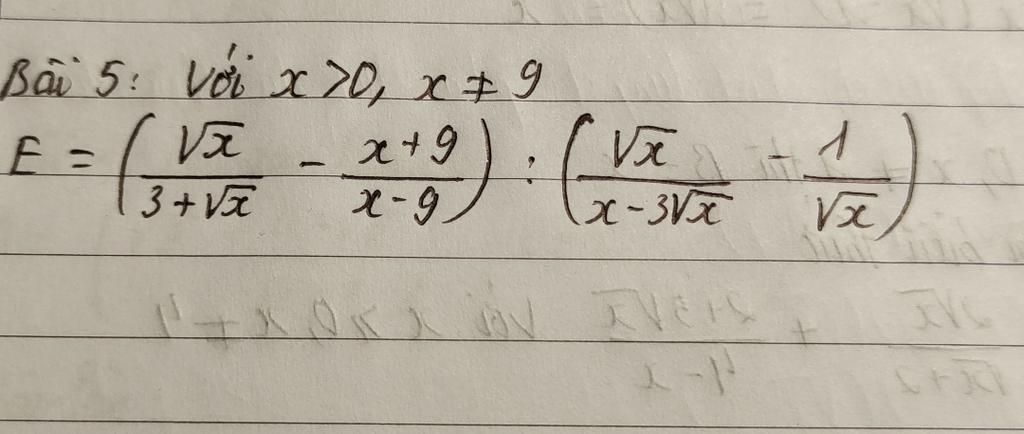 Bài 5: Với x > 0, x ≠ 9
E = (√x / (3 + √x) - (x + 9) / (x - 9)) : (√x / (x - 3√x) - 1 / √x)